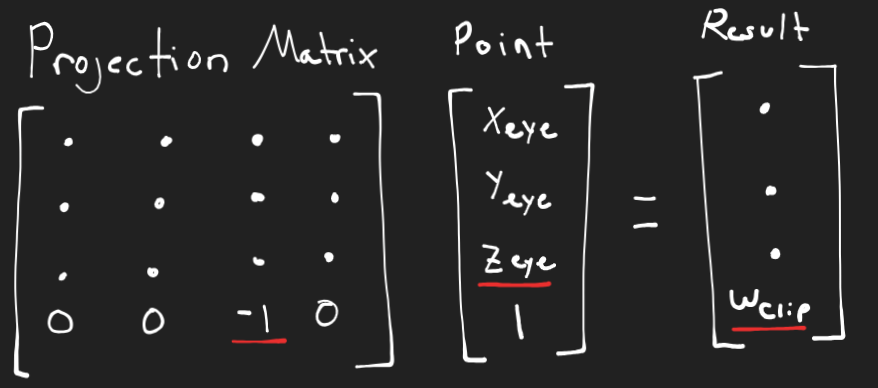 Projection Matrix Point Result
. . . . Xeye .
. . . . Yeye = .
. . . . Zeye .
0 0 -1 0 1 Wclip